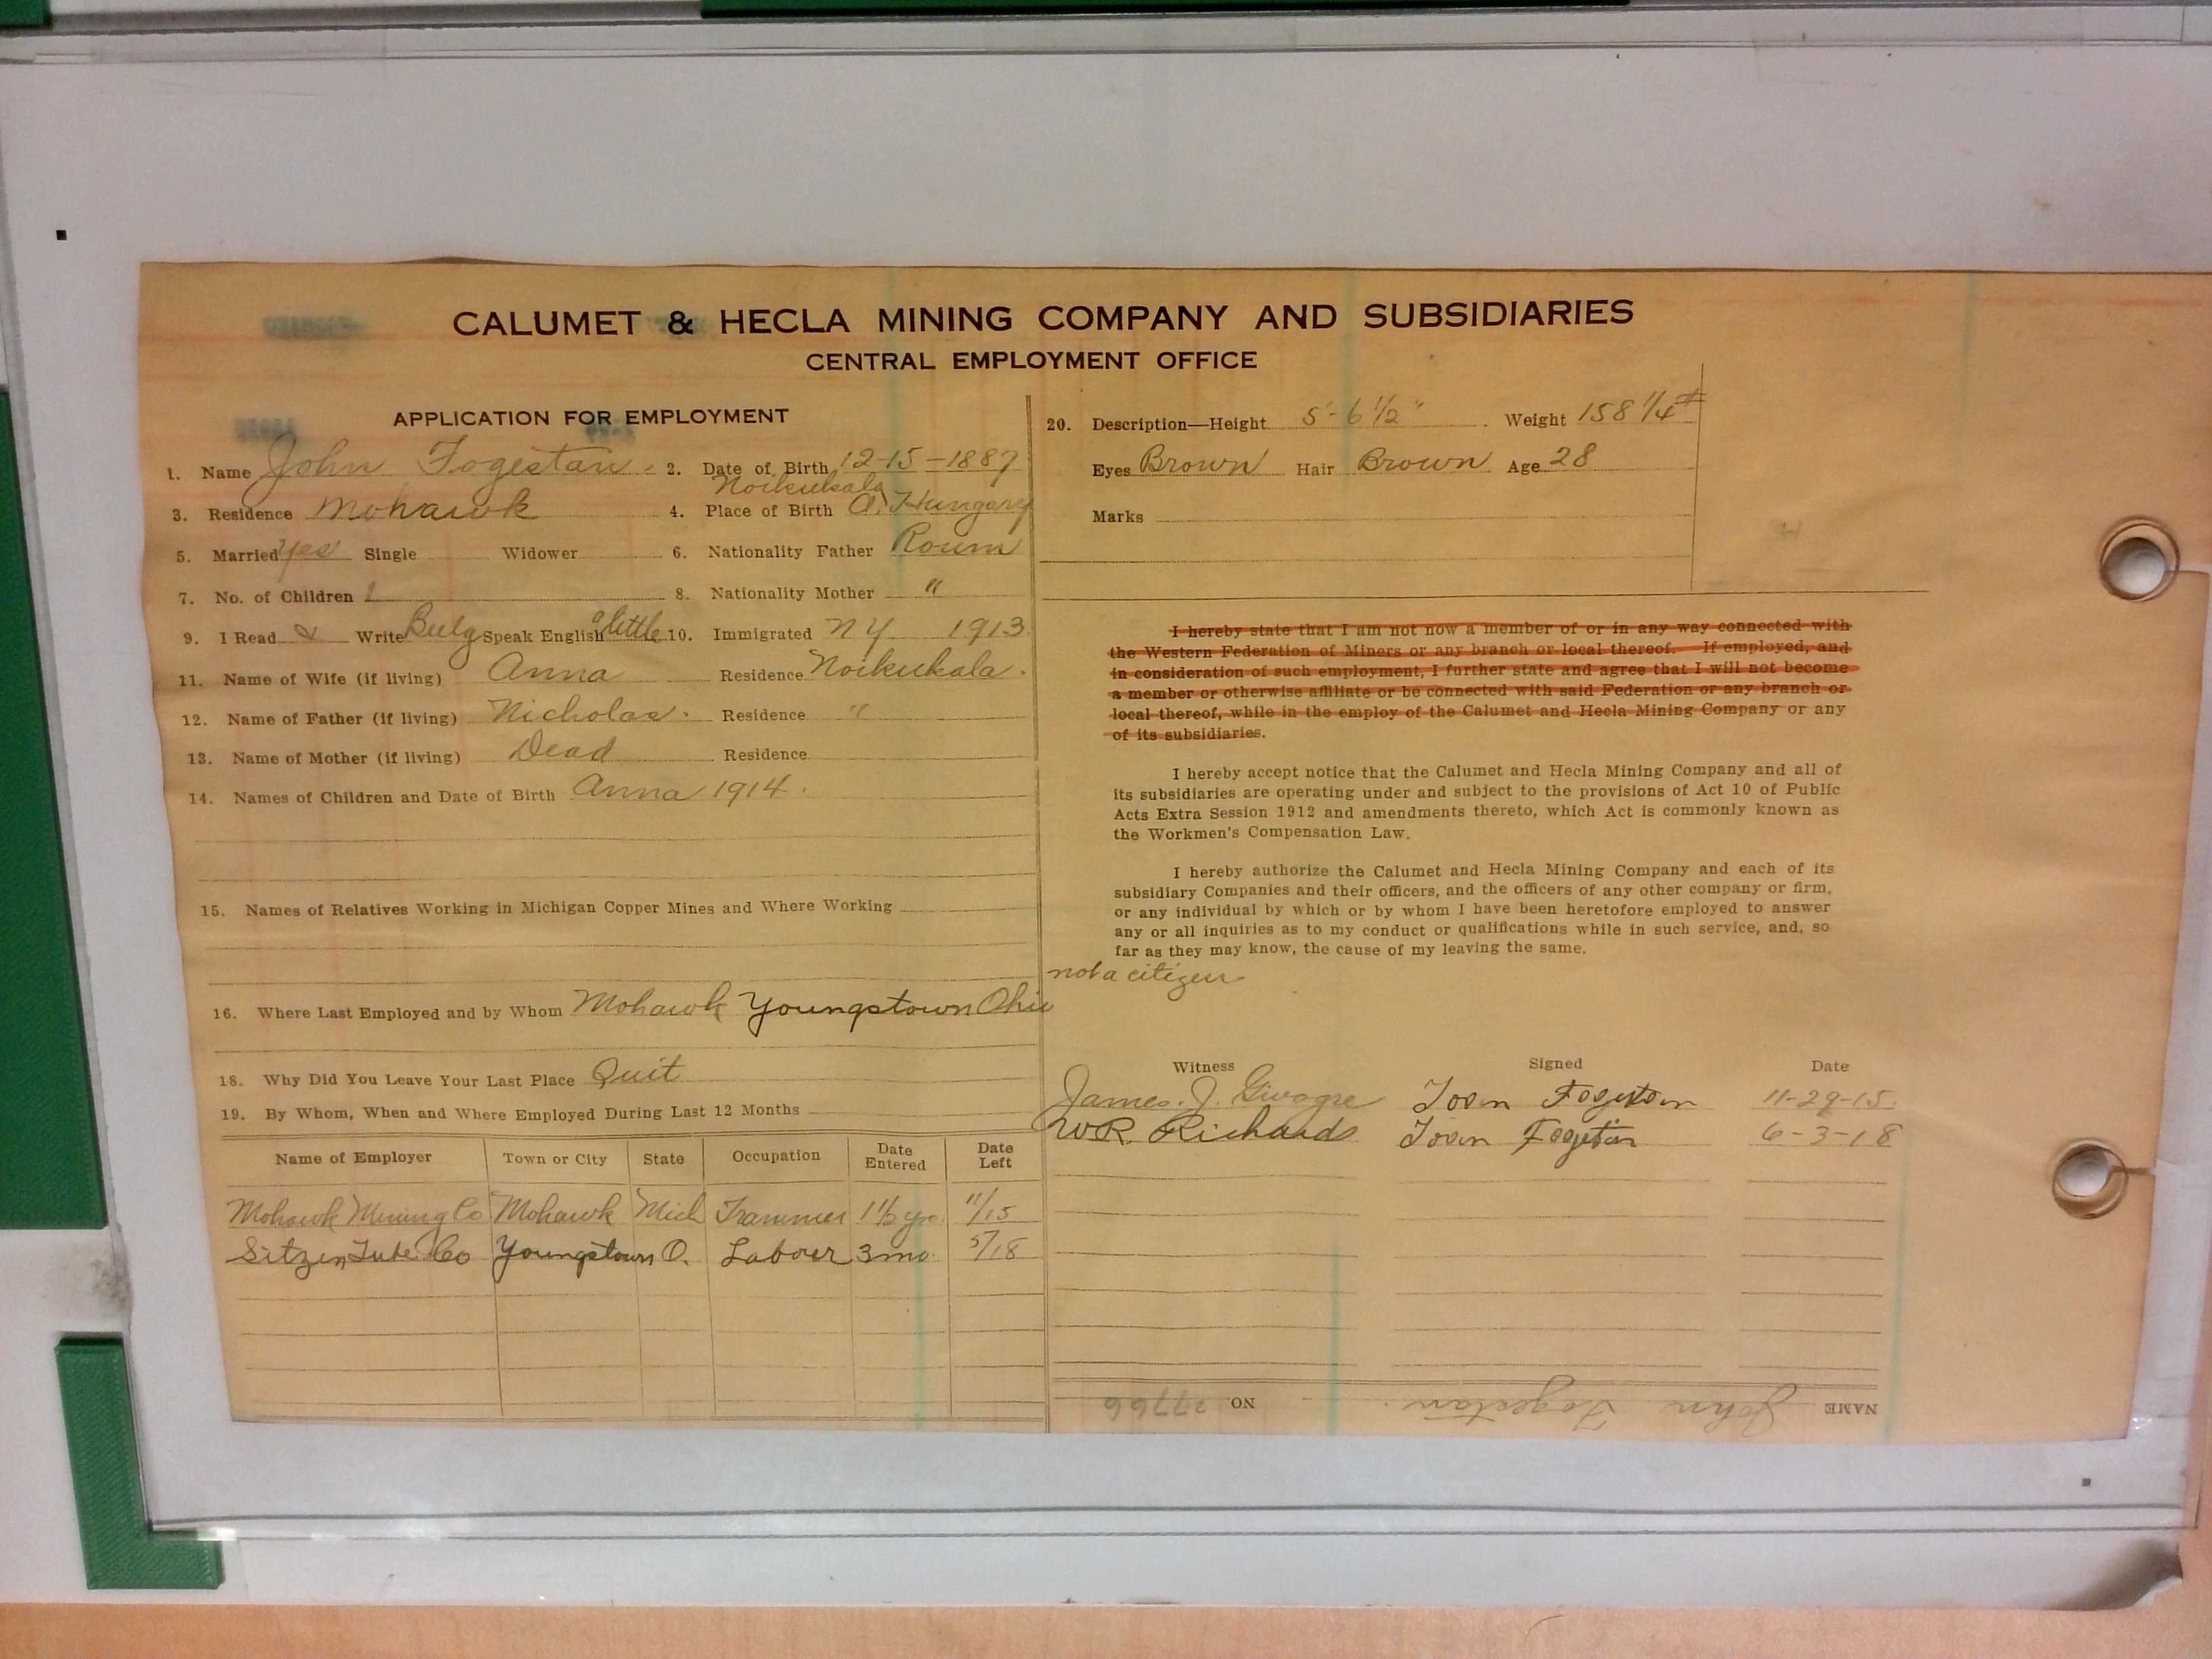 CALUMET & HECLA MINING COMPANY AND SUBSIDIARIES
CENTRAL EMPLOYMENT OFFICE
APPLICATION FOR EMPLOYMENT
1. Name John Fogestan. 2. Date of Birth 12-15-1887
Noikukala
3. Residence Mohawk 4. Place of Birth A. Hungary
5. Married yes Single Widower 6. Nationality Father Roum
7. No. of Children 1 8. Nationality Mother "
9. I Read & Write Bulg Speak English a little 10. Immigrated N Y. 1913
11. Name of Wife (if living) Anna Residence Noikukala.
12. Name of Father (if living) Nicholas. Residence "
13. Name of Mother (if living) Dead Residence
14. Names of Children and Date of Birth Anna 1914.
15. Names of Relatives Working in Michigan Copper Mines and Where Working
16. Where Last Employed and by Whom Mohawk Youngstown Ohio
18. Why Did You Leave Your Last Place Quit
19. By Whom, When and Where Employed During Last 12 Months
Name of Employer Town or City State Occupation Date Entered Date Left
Mohawk Mining Co Mohawk Mich Trammer 1 1/2 yr. 11/15
Sitzen Tube Co Youngstown O. Labour 3 mo 5/18
20. Description—Height 5'-6 1/2" Weight 158 1/4 #
Eyes Brown Hair Brown Age 28
Marks
I hereby state that I am not now a member of or in any way connected with
the Western Federation of Miners or any branch or local thereof. If employed, and
in consideration of such employment, I further state and agree that I will not become
a member or otherwise affiliate or be connected with said Federation or any branch or
local thereof, while in the employ of the Calumet and Hecla Mining Company or any
of its subsidiaries.
I hereby accept notice that the Calumet and Hecla Mining Company and all of
its subsidiaries are operating under and subject to the provisions of Act 10 of Public
Acts Extra Session 1912 and amendments thereto, which Act is commonly known as
the Workmen's Compensation Law.
I hereby authorize the Calumet and Hecla Mining Company and each of its
subsidiary Companies and their officers, and the officers of any other company or firm,
or any individual by which or by whom I have been heretofore employed to answer
any or all inquiries as to my conduct or qualifications while in such service, and, so
far as they may know, the cause of my leaving the same.
not a citizen
Witness Signed Date
James. J. Ioan Fogestan 11-29-15.
W.R. Richards Ioan Fogetan 6-3-18
NAME John Fogestan. NO. 27766